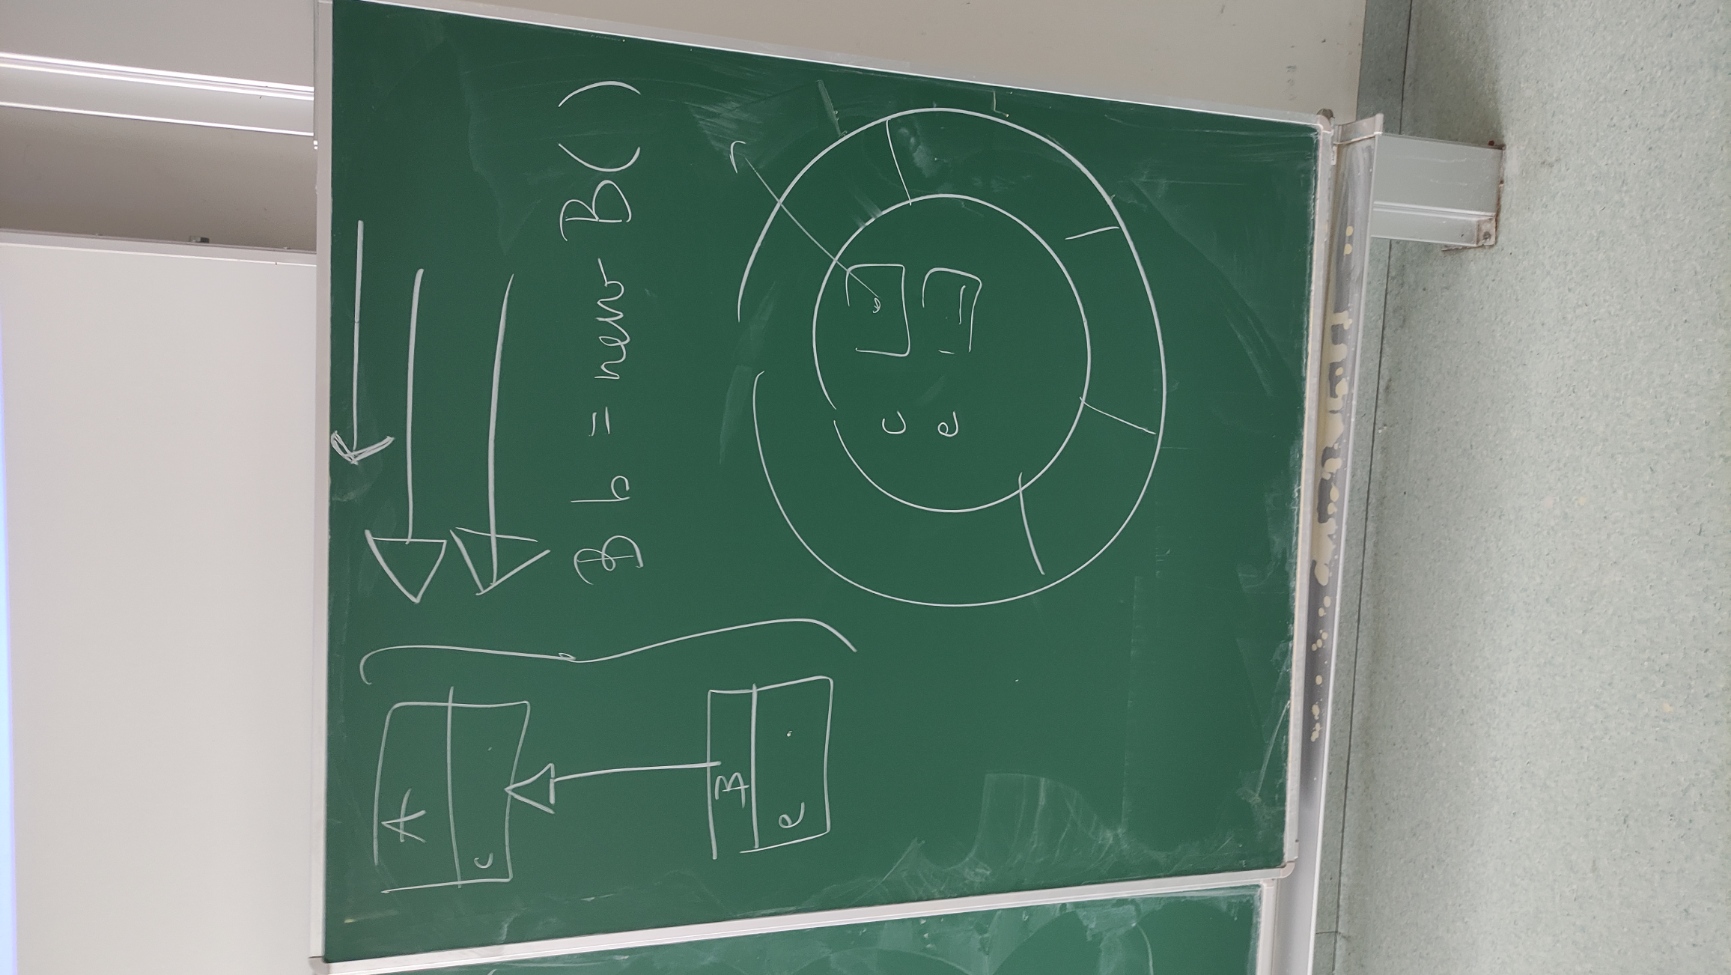 A
c
B
e
B b = new B( )
c
e